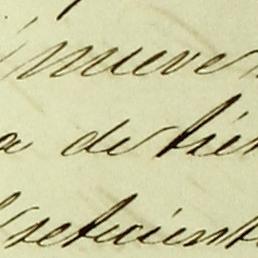 nueve
a de tier
setecient